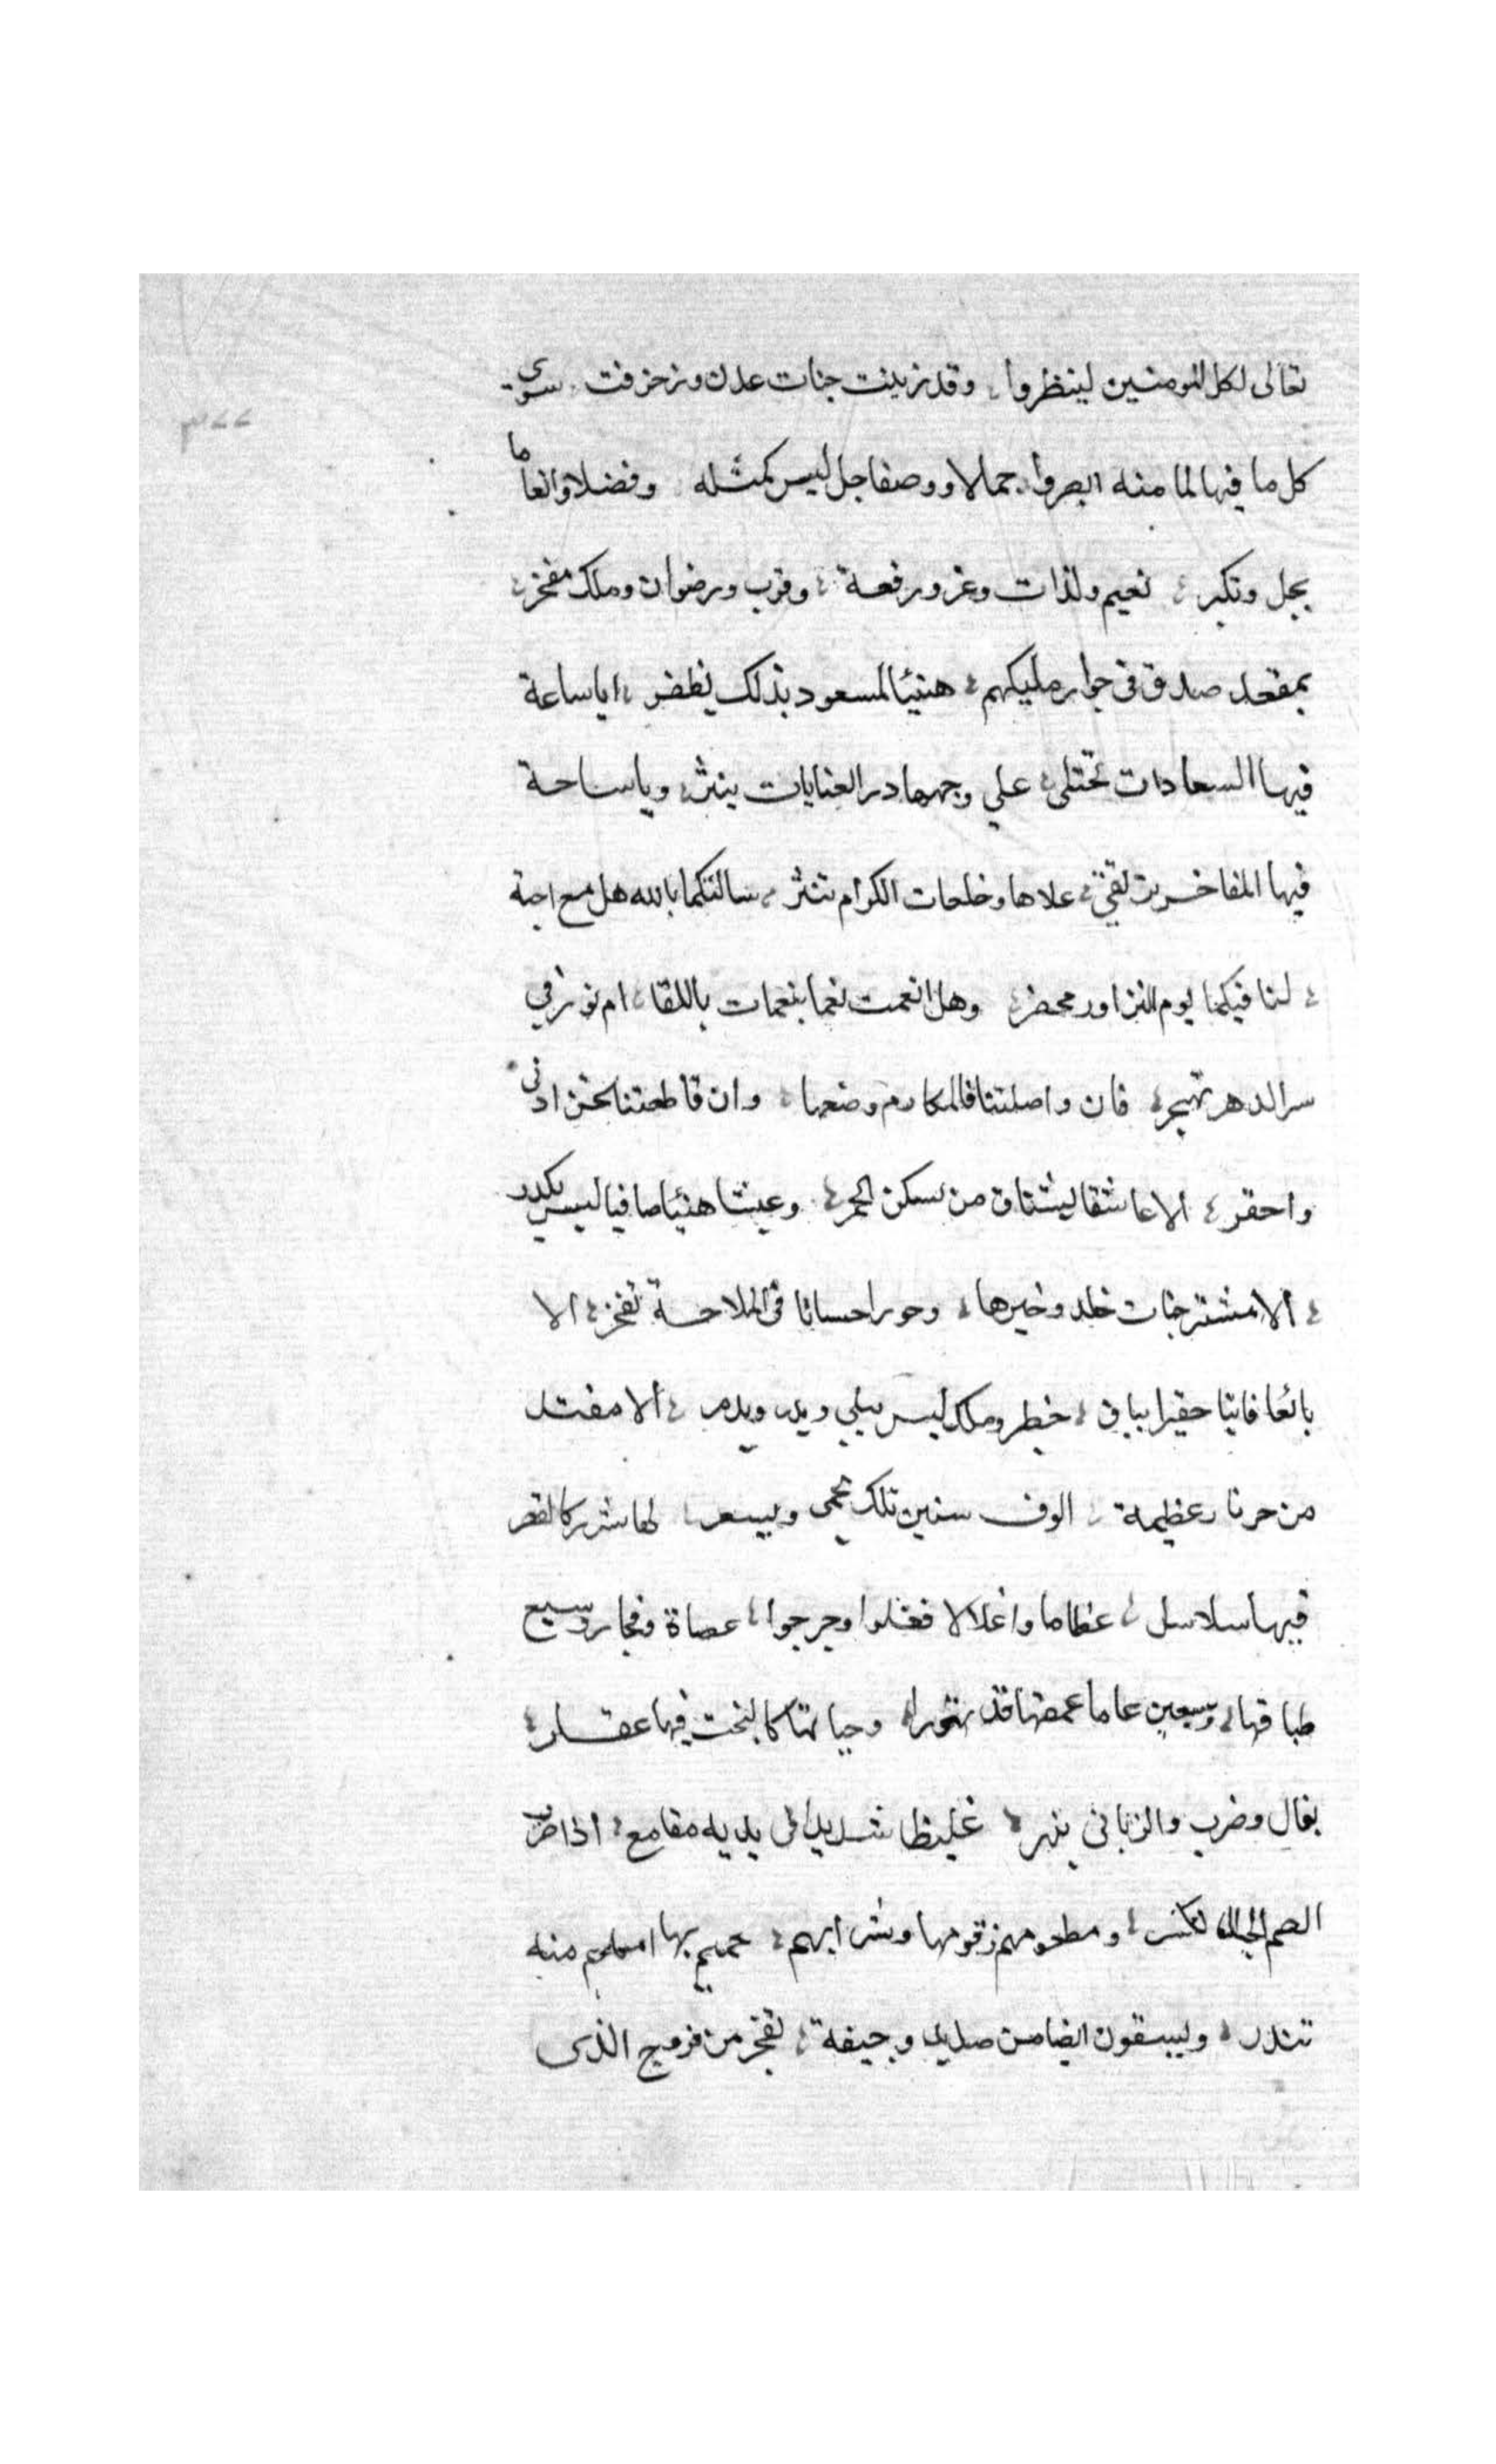 تعالى لكل المومنين لينظروا، وقد زينت جنات عدن وزخرفت سوى
كل ما فيها لما منه ابصروا، جمالا ووصفا جل ليس كمثله وفضلا وانعاما
يجل وتكبر، نعيم ولذات وعز ورفعة، وقرب ورضوان وملك مفخر،
بمقعد صدق في جوار مليكهم، هنيئا لمسعود بذلك يظفر، ايا ساعة
فيها السعادات تجتلى، على وجهها در العنايات ينثر، ويا ساحة
فيها المفاخر علاها وخلعات الكرام تنثر، سالتكما بالله هل مع احبة
، لنا فيكما يوم التزاور محضر، وهل انعمت نعما بنعمات باللقا، ام
سر الدهر تهجر، فان واصلتنا فالمكارم وضعها، وان قاطعتنا نحن ادنى
واحقر، الا عاشقا ليشتاق من يسكن الحمى، وعيشا هنيئا صافيا ليس يكدر
، ألا مشتر جنات خلد وخيرها، وحورا حسانا في الملاحة تفخر، الا
بائعا فانيا حقيرا بباق، خطر وملك ليس يبلى ويدمر، ألا مفتد
من حر نار عظيمة، الوف سنين تلك تحمى وتسعر، لها شرر كالقصر
فيها سلاسل، عظاما واغلالا فغلوا وجرجروا، عصاة وفجار وسبع
طباقها، وسبعين عاما عمقها قد تهورا، وحياتها كالبخت فيها عقارب،
بغال وضرب والزباني ينهر، غليظا شديدا في يديه مقامع، اذا ضرب
الصم الجبال تكسر، ومطعومهم زقومها وشرابهم، حميم بها منه
تندر، ويسقون ايضا من صديد وجيفة، تفجر من فروج الذى